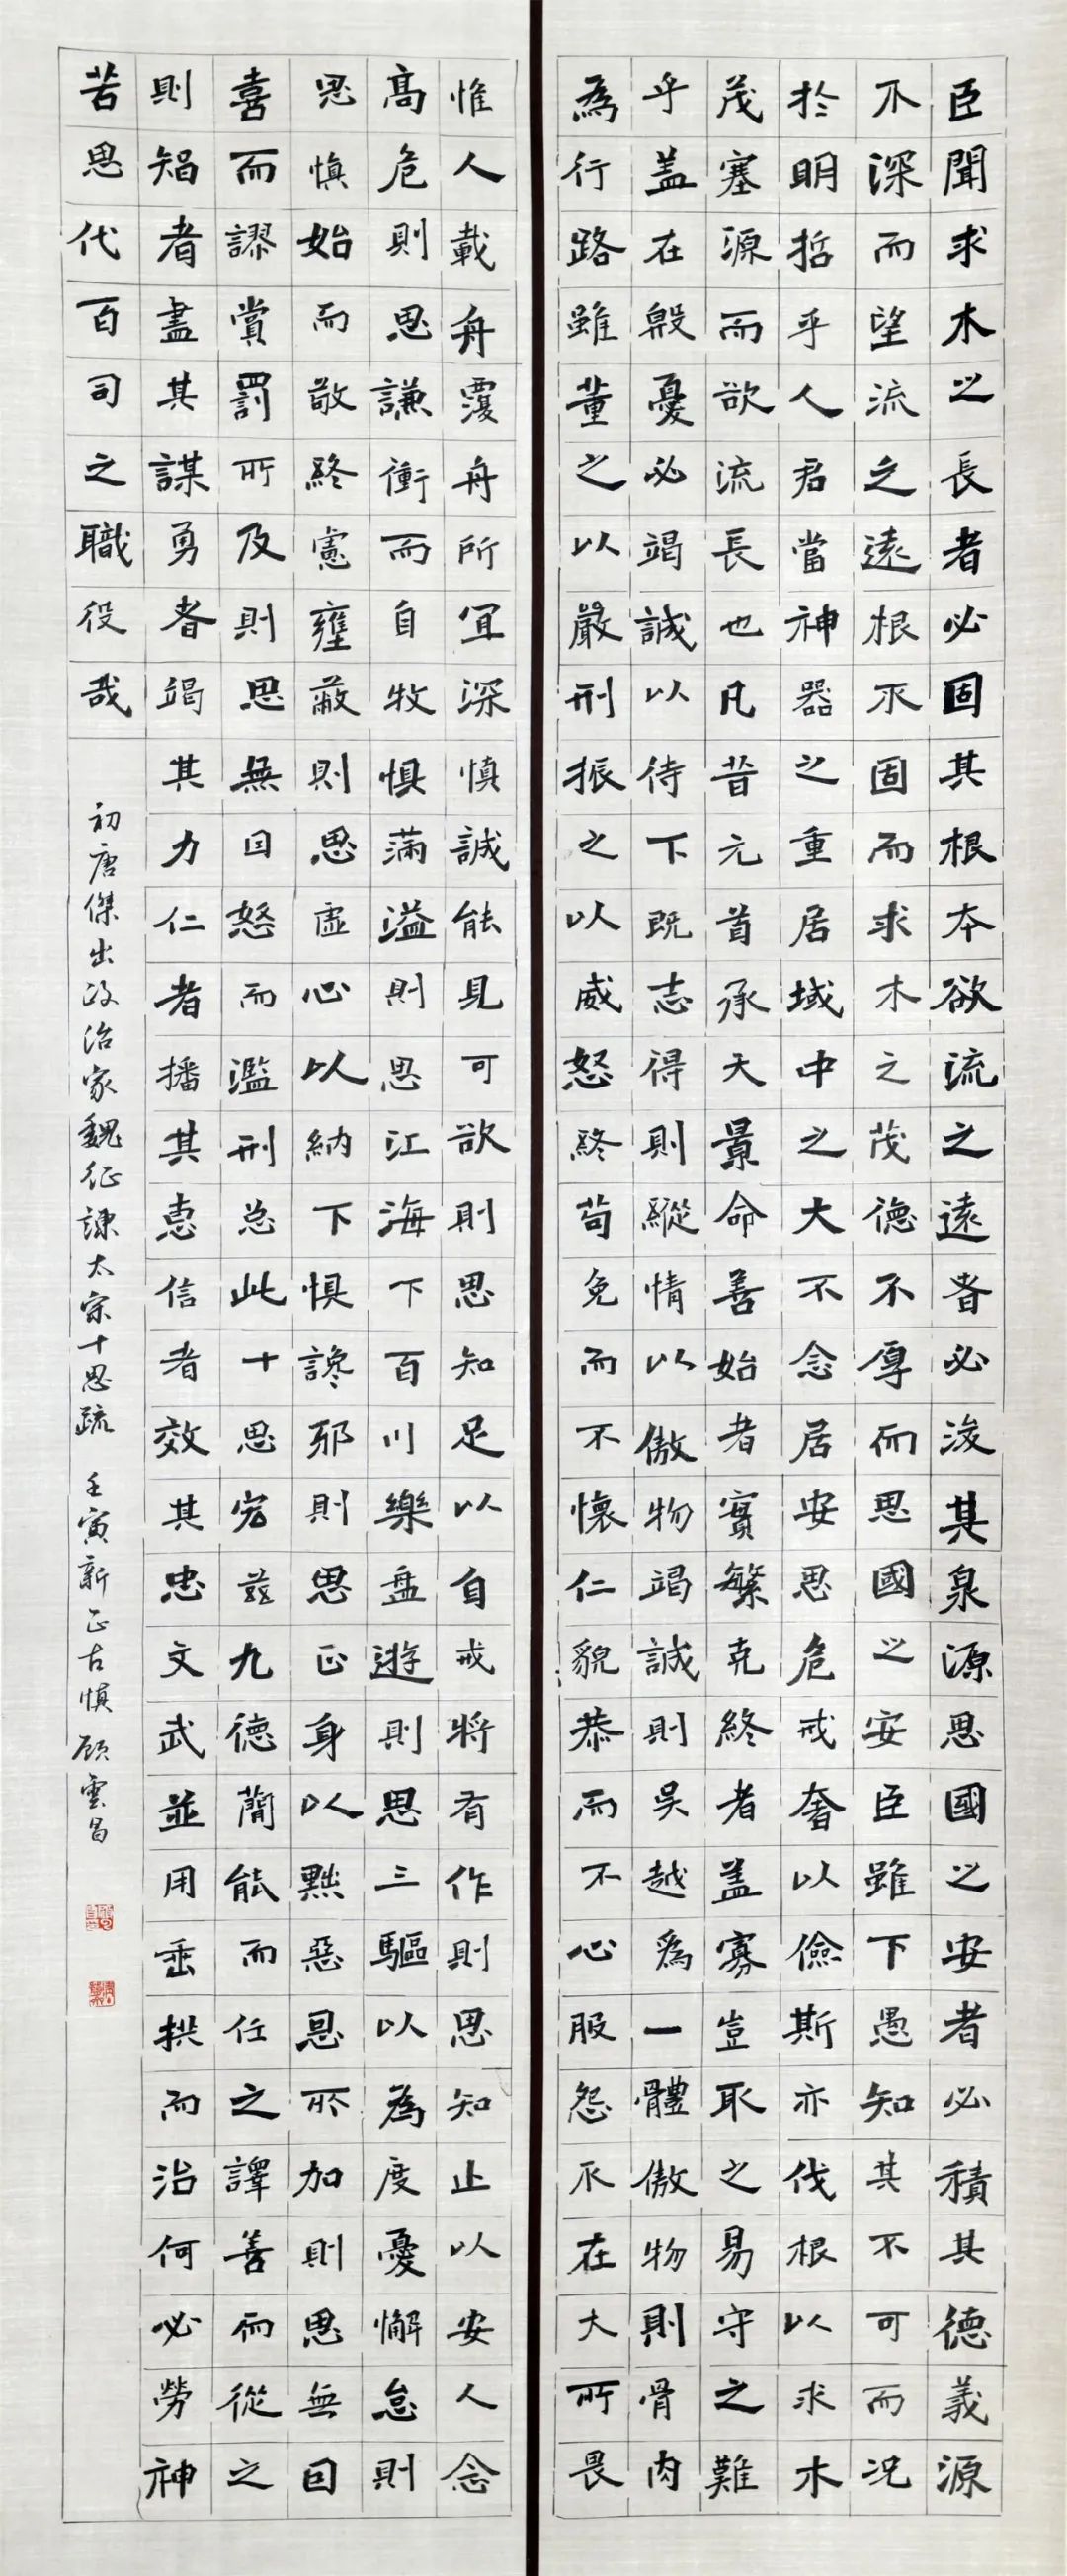 臣聞求木之長者必固其根本欲流之遠者必浚其泉源思國之安者必積其德義源
不深而望流之遠根不固而求木之茂德不厚而思國之安臣雖下愚知其不可而况
於明哲乎人君當神器之重居域中之大不念居安思危戒奢以儉斯亦伐根以求木
茂塞源而欲流長也凡昔元首承天景命善始者實繁克終者盖寡豈取之易守之難
乎盖在殷憂必竭誠以待下既志得則縱情以傲物竭誠則吳越為一體傲物則骨肉
為行路雖董之以嚴刑振之以威怒終苟免而不懷仁貌恭而不心服怨不在大所畏
惟人載舟覆舟所宜深慎誠能見可欲則思知足以自戒將有作則思知止以安人念
高危則思謙衝而自牧惧滿溢則思江海下百川樂盘遊則思三驅以為度憂懈怠則
思慎始而敬終慮壅蔽則思虛心以納下惧讒邪則思正身以黜惡恩所加則思無因
喜而謬賞罰所及則思無因怒而濫刑总此十思宏茲九德簡能而任之譯善而從之
則智者盡其謀勇者竭其力仁者播其惠信者效其忠文武並用垂拱而治何必勞神
苦思代百司之職役哉
初唐傑出政治家魏征諫太宗十思疏 壬寅新正古慎顧雲昌